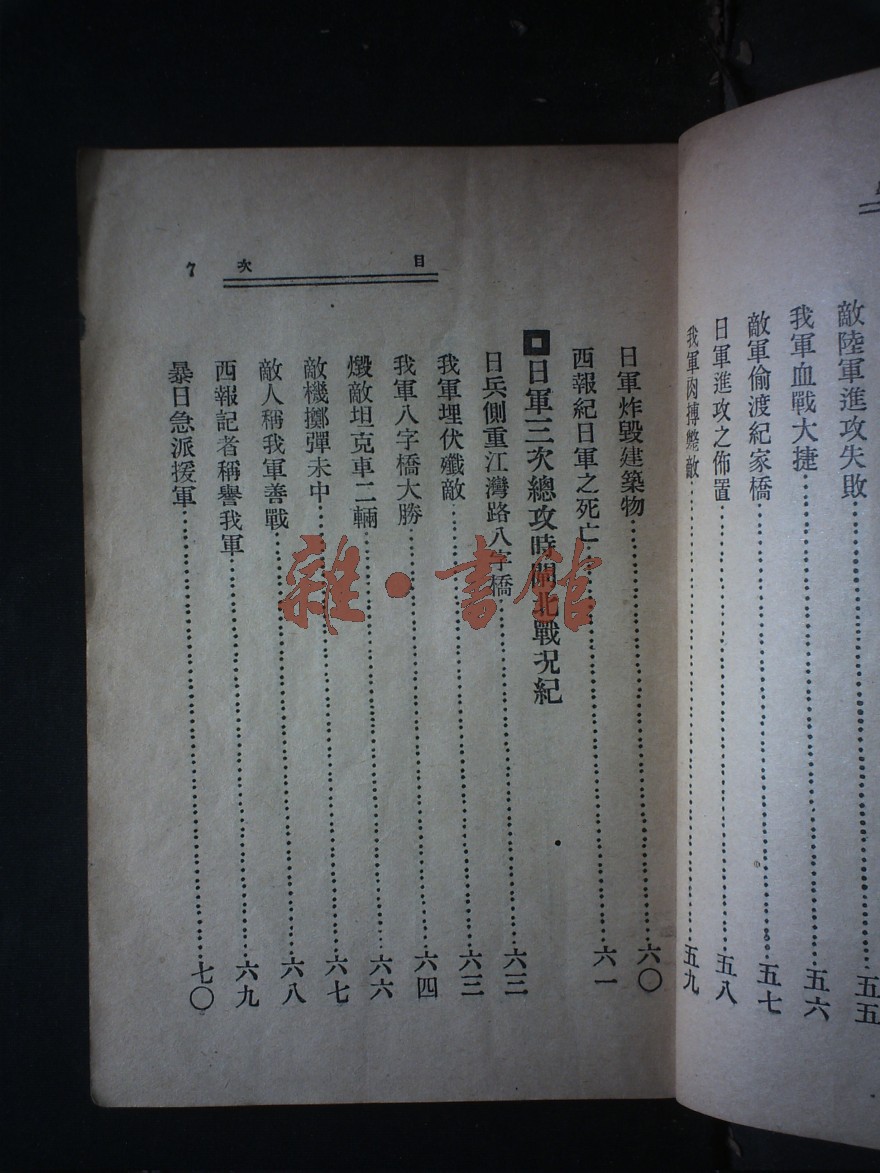 敵陸軍進攻失敗……五五
我軍血戰大捷……五六
敵軍偷渡紀家橋……五七
日軍進攻之佈置……五八
我軍肉搏斃敵……五九
目次 7
日軍炸毀建築物……六〇
西報紀日軍之死亡……六一
日軍三次總攻時閘北戰況紀
日兵側重江灣路八字橋……六三
我軍埋伏殲敵……六三
我軍八字橋大勝……六四
燬敵坦克車二輛……六六
敵機擲彈未中……六七
敵人稱我軍善戰……六八
西報記者稱譽我軍……六九
暴日急派援軍……七〇
雜·書館